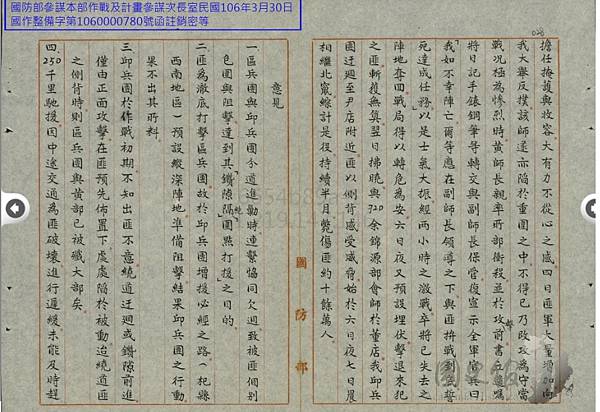 國防部參謀本部作戰及計畫參謀次長室民國106年3月30日
國作整備字第1060000780號函註銷密等
擔任掩護與收容大有力不從心之感四日匪軍大量增加向
我大舉反撲該師遂亦陷於重圍之中不得已乃改攻為守當
戰況極為慘烈時黃師長親率所部衝殺並於攻前書
將日記手錶鋼筆等轉交與副師長保管復宣示全軍官兵曰
我如不幸陣亡爾等應在副師長領導之下與匪拚戰到底
死達成任務以是士氣大振經兩小時之激戰卒將已失去之
陣地奪回戰局得以轉危為安六日夜又預設埋伏擊退來犯
之匪斬獲無算翌日拂曉與720余錦源部會師於董店我邱兵
團迂迴至尹店附近匪以側背感受威脅始於六日夜七日晨
相繼北竄綜計是役持續半月斃傷匪約十餘萬人
國防部
意見
一區兵團與邱兵團分道進勦時連繫協同欠週致被匪個別
包圍與阻擊達到其鑽隙隔圍點打援之目的
二匪為澈底打擊區兵團故於邱兵團增援必經之路（杞縣
西南地區）預設縱深陣地準備阻擊結果邱兵團之行動
果不出其所料
三邱兵團於作戰初期不知出匪不意繞道迂迴或鑽隙前進
僅由正面攻擊在匪預先佈置下處處陷於被動迨繞道匪
之側背時則區兵團與黃部已被殲大部矣
四250千里馳援因中途交通為匪破壞進行遲緩未能及時趕